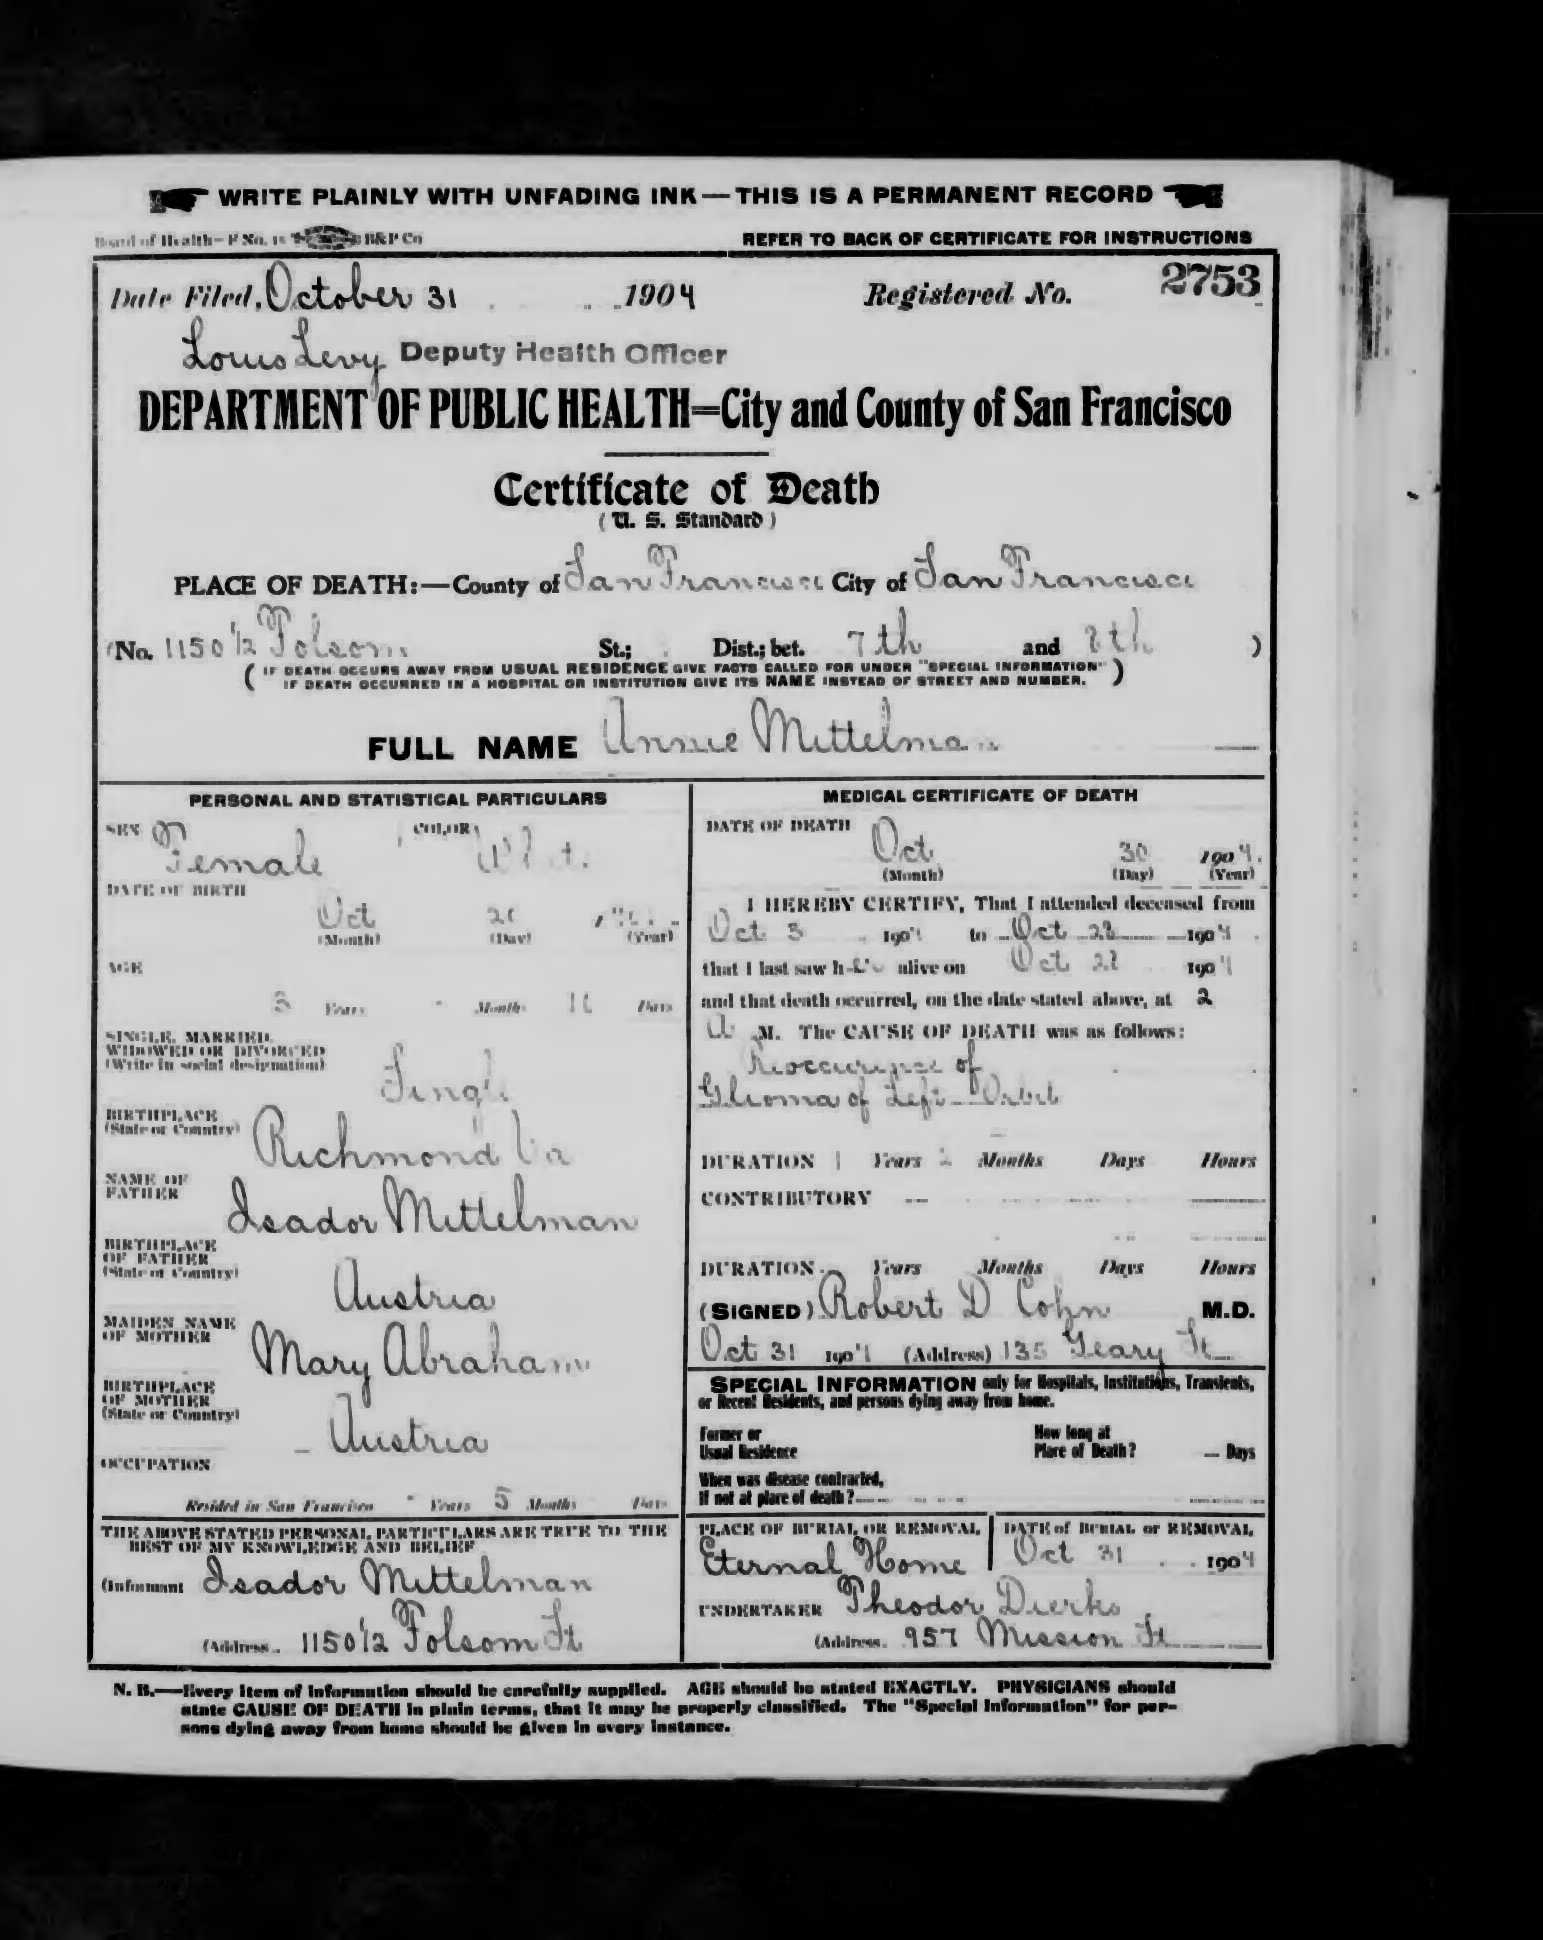 WRITE PLAINLY WITH UNFADING INK—THIS IS A PERMANENT RECORD
Board of Health—F No. 15 B&P Co
REFER TO BACK OF CERTIFICATE FOR INSTRUCTIONS
Date Filed, October 31 1904 Registered No. 2753
Louis Levy Deputy Health Officer
DEPARTMENT OF PUBLIC HEALTH=City and County of San Francisco
Certificate of Death
(U. S. Standard)
PLACE OF DEATH:—County of San Francisco City of San Francisco
(No. 1150 1/2 Folsom St.; Dist.; bet. 7th and 8th )
( IF DEATH OCCURS AWAY FROM USUAL RESIDENCE GIVE FACTS CALLED FOR UNDER "SPECIAL INFORMATION" )
IF DEATH OCCURRED IN A HOSPITAL OR INSTITUTION GIVE ITS NAME INSTEAD OF STREET AND NUMBER.
FULL NAME Annie Mittelman
PERSONAL AND STATISTICAL PARTICULARS
SEX Female COLOR
DATE OF BIRTH
Oct
(Month) (Day) (Year)
AGE
3 Years Months Days
SINGLE, MARRIED,
WIDOWED OR DIVORCED
(Write in social designation)
Single
BIRTHPLACE
(State or Country)
Richmond Va
NAME OF
FATHER
Isador Mittelman
BIRTHPLACE
OF FATHER
(State or Country)
Austria
MAIDEN NAME
OF MOTHER
Mary Abraham
BIRTHPLACE
OF MOTHER
(State or Country)
Austria
OCCUPATION
Resided in San Francisco - Years 5 Months Days
THE ABOVE STATED PERSONAL PARTICULARS ARE TRUE TO THE
BEST OF MY KNOWLEDGE AND BELIEF
(Informant Isador Mittelman
(Address. 1150 1/2 Folsom St
MEDICAL CERTIFICATE OF DEATH
DATE OF DEATH
Oct 30 1904.
(Month) (Day) (Year)
I HEREBY CERTIFY, That I attended deceased from
Oct 3 1904 to Oct 28 1904
that I last saw h-er alive on Oct 1904
and that death occurred, on the date stated above, at 2
A M. The CAUSE OF DEATH was as follows:
Reoccurence of
Glioma of Left Orbit
DURATION 1 Years 2 Months Days Hours
CONTRIBUTORY
DURATION Years Months Days Hours
(SIGNED) Robert D Cohn M.D.
Oct 31 1904 (Address) 135 Geary St
SPECIAL INFORMATION only for Hospitals, Institutions, Transients,
or Recent Residents, and persons dying away from home.
Former or
Usual Residence
How long at
Place of Death? Days
When was disease contracted,
If not at place of death?
PLACE OF BURIAL OR REMOVAL
Eternal Home
DATE of BURIAL or REMOVAL
Oct 31 1904
UNDERTAKER Theodor Dierks
(Address. 957 Mission St
N. B.—Every item of information should be carefully supplied. AGE should be stated EXACTLY. PHYSICIANS should
state CAUSE OF DEATH in plain terms, that it may be properly classified. The "Special Information" for per-
sons dying away from home should be given in every instance.